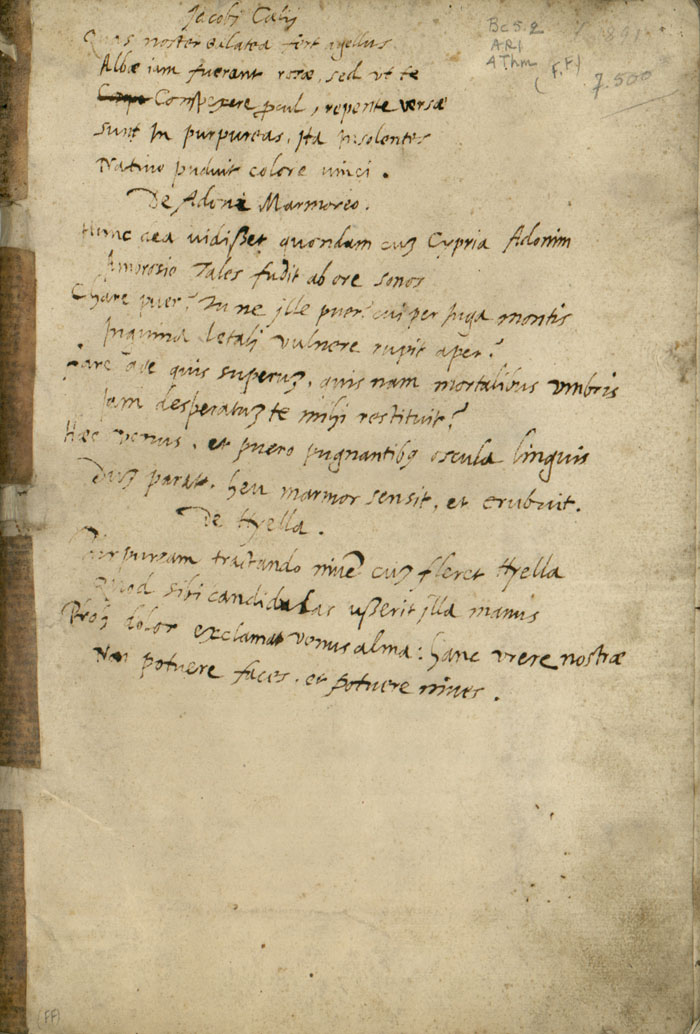 Jacobi Calij
Quas noster Galatea fert agellus
Albæ iam fuerant rosæ, sed vt te
Conspexere ꝓcul, repente versæ
Sunt in purpureas, Ita insolentes
Natiuo puduit colore uinci.
De Adone Marmoreo.
Hunc dea uidißet quondam cuʒ Cypria Adonim
Ambrosio Tales fudit ab ore sonos
Chare puer? Tu ne ille puer? cui per iuga montis
Inguina letali vulnere rupit aper?
quis superuʒ, quis nam mortalibus vmbris
Iam desperatuʒ te mihi restituit?
Hæc venus, et puero pugnantibꝯ oscula linguis
Duʒ parat, heu marmor sensit, et erubuit.
De Hyella.
Purpuream tractando niuē cuʒ fleret Hyella
Quod sibi candidulas ußerit illa manus
Proh dolor exclamat venus alma: hanc vrere nostræ
Non potuere faces, et potuere niues.
Bc5.2
AR1
4Thm
(F.F)
1891
7.500
(FF)